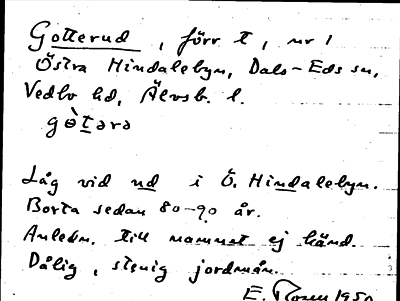 Gotterud, förr t, nr 1
Östra Hindalebyn, Dals-Eds sn,
Vedbo hd, Älvsb. l.
gòtərə
Låg vid nd i Ö. Hindalebyn.
Borta sedan 80-90 år.
Anledn. till namnet ej känd.
Dålig, stenig jordmån.
E. Rosen 1950